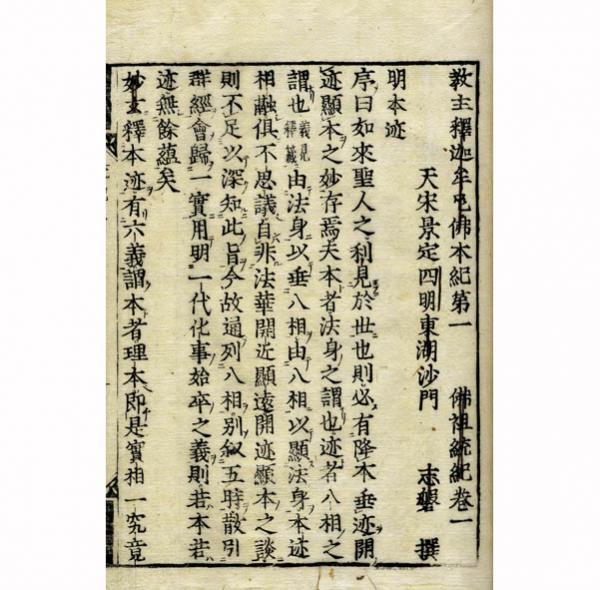 教主釋迦牟尼佛本紀第一　佛祖統紀卷一
大宋景定四明東湖沙門　志磐　撰
明本迹
序曰如來聖人之利見於世也則必有降本垂迹開
迹顯本之妙存焉夫本者法身之謂也迹者八相之
謂也義見釋籤由法身以垂八相由八相以顯法身本迹
相融俱不思議自非法華開近顯遠開迹顯本之談
則不足以深知此旨今故通列八相別叙五時散引
群經會歸一實用明一代化事始卒之義則若本若
迹無餘蘊矣
妙玄釋本迹有六義謂本者理本即是實相一究竟